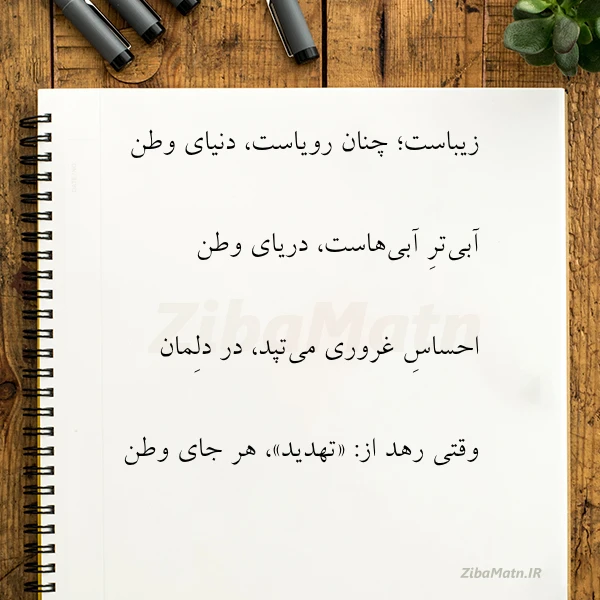 زیباست؛ چنان رویاست، دنیای وطن
آبی‌ترِ آبی‌هاست، دریای وطن
ZibaMatn
احساسِ غروری می‌تپد، در دلِمان
وقتی رهد از: «تهدید»، هر جای وطن
ZibaMatn.IR